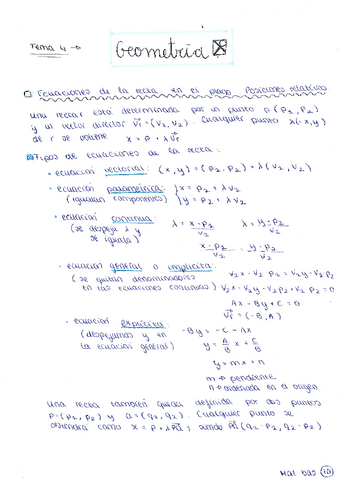 Tema 4 → Geometría
Ecuaciones de la recta en el plano. Posiciones relativas
Una recta r está determinada por un punto P(P1, P2)
y un vector director Vr = (V1, V2). Cualquier punto X(x, y)
de r se obtiene X = P + λVr
Tipos de ecuaciones de la recta:
• ecuación vectorial: (x, y) = (P1, P2) + λ(V1, V2)
• ecuación paramétrica: { x = P1 + λV1
(igualan componentes) { y = P2 + λV2
• ecuación continua: λ = x - P1 / V1 λ = y - P2 / V2
(se despeja λ y
se iguala) x - P1 / V1 = y - P2 / V2
• ecuación general o implícita:
(se quitan denominadores V2x - V2P1 = V1y - V1P2
en las ecuaciones continuas) V2x - V1y - V2P1 + V1P2 = 0
Ax - By + C = 0
Vr = (-B, A)
• ecuación explícita: -By = -C - Ax
(despejamos y en y = A/B x + C/B
la ecuación general)
y = mx + n
m → pendiente
n → ordenada en el origen
Una recta también queda definida por dos puntos
P = (P1, P2) y Q = (q1, q2). Cualquier punto se
obtendrá como X = P + λPQ; siendo PQ (q1 - P1, q2 - P2)